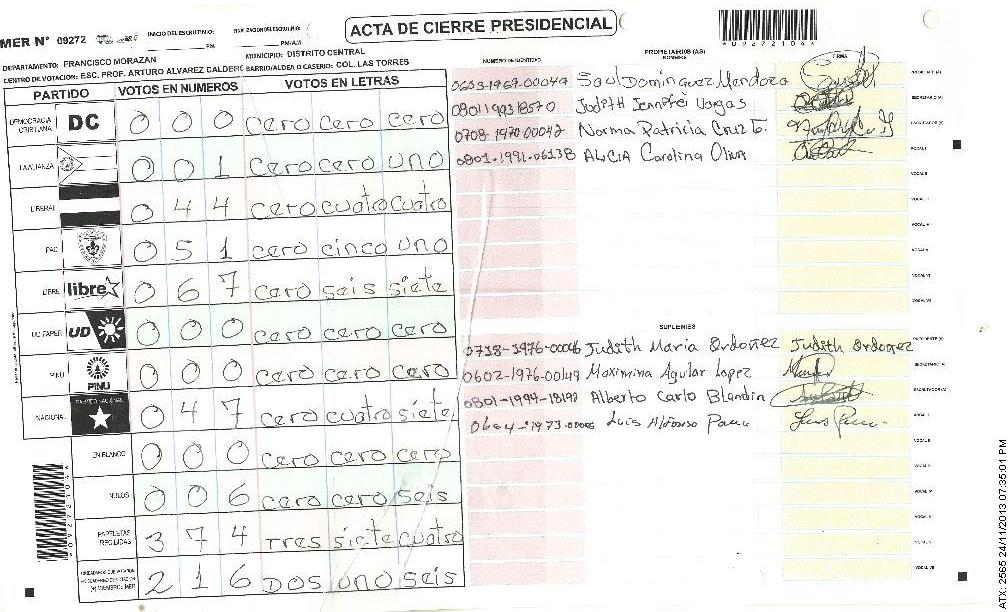 ACTA DE CIERRE PRESIDENCIAL
MER N° 09272
INICIO DEL ESCRUTINIO: PM
PM/AM
DEPARTAMENTO: FRANCISCO MORAZAN MUNICIPIO: DISTRITO CENTRAL
CENTRO DE VOTACION: ESC. PROF. ARTURO ALVAREZ CALDER BARRIO/ALDEA O CASERIO: COL. LAS TORRES
PARTIDO VOTOS EN NUMEROS VOTOS EN LETRAS
DEMOCRACIA CRISTIANA DC 0 0 0 cero cero cero
LA ALIANZA 0 0 1 cero cero uno
LIBERAL 0 4 4 cero cuatro cuatro
PAC 0 5 1 cero cinco uno
LIBRE libre 0 6 7 cero seis siete
UD FAPER UD 0 0 0 cero cero cero
PINU PINU 0 0 0 cero cero cero
NACIONAL PARTIDO NACIONAL 0 4 7 cero cuatro siete
EN BLANCO 0 0 0 cero cero cero
NULOS 0 0 6 cero cero seis
PAPELETAS RECIBIDAS 3 7 4 tres siete cuatro
2 1 6 DOS uno seis
NUMERO DE IDENTIDAD PROPIETARIOS (AS) NOMBRE FIRMA
0603-1969-00049 Saul Dominguez Mendoza PRESIDENTE (A)
0801199318570 Judith Jennifei Vargas SECRETARIO (A)
0708-1970-00042 Norma Patricia Cruz ESCRUTADOR (A)
0801-1991-06138 Alicia Carolina Oliva VOCAL I
VOCAL II
VOCAL III
VOCAL IV
VOCAL V
VOCAL VI
VOCAL VII
SUPLENTES
Judith Maria Ordoñez Judith Ordoñez PRESIDENTE (A)
0602-1976-00149 Maximina Aguilar Lopez SECRETARIO (A)
0801-1994-18192 Alberto Carlo Blandin ESCRUTADOR (A)
Luis Alfonso VOCAL I
VOCAL II
VOCAL III
VOCAL IV
VOCAL V
VOCAL VI
VOCAL VII
ATX: 2565 24/11/2013 07:35:01 PM